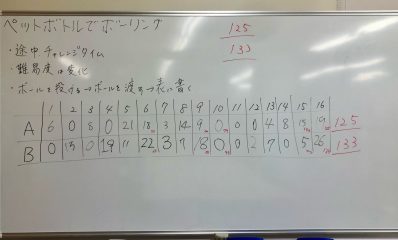 ペットボトルでボーリング
125
133
・途中チャレンジタイム
・難易度の変化
・ボールを投げる→ボールを渡す→表に書く
1 2 3 4 5 6 7 8 9 10 11 12 13 14 15 16
A 6 0 8 0 21 18 3 14 9 0 0 0 4 8 15 19 125
B 0 13 0 19 11 22 3 7 18 0 0 2 7 0 5 26 133